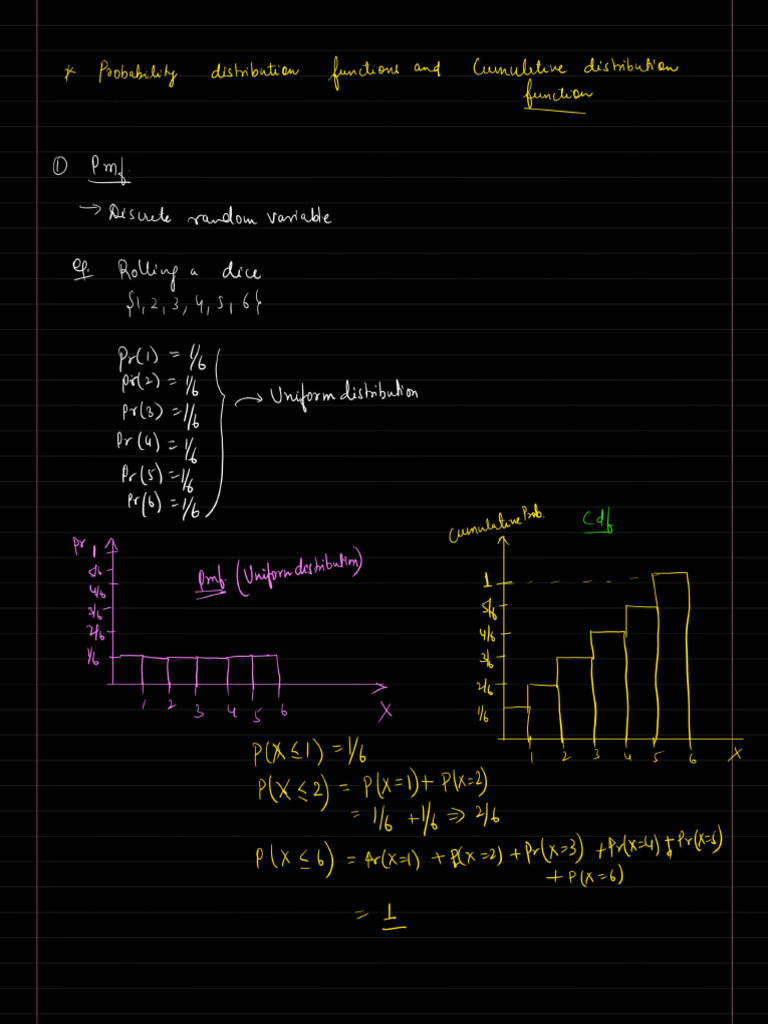 * Probability distribution functions and Cumulative distribution
function
① Pmf
→ Discrete random variable
eg. Rolling a dice
{1, 2, 3, 4, 5, 6}
Pr(1) = 1/6
Pr(2) = 1/6
Pr(3) = 1/6
Pr(4) = 1/6
Pr(5) = 1/6
Pr(6) = 1/6
→ Uniform distribution
Pr
1
5/6
4/6
3/6
2/6
1/6
Pmf (Uniform distribution)
1 2 3 4 5 6 X
Cumulative Prob.
Cdf
1
5/6
4/6
3/6
2/6
1/6
1 2 3 4 5 6 X
P(X ≤ 1) = 1/6
P(X ≤ 2) = P(X=1) + P(X=2)
= 1/6 + 1/6 ⇒ 2/6
P(X ≤ 6) = Pr(X=1) + P(X=2) + Pr(X=3) + Pr(X=4) + Pr(X=5)
+ P(X=6)
= 1